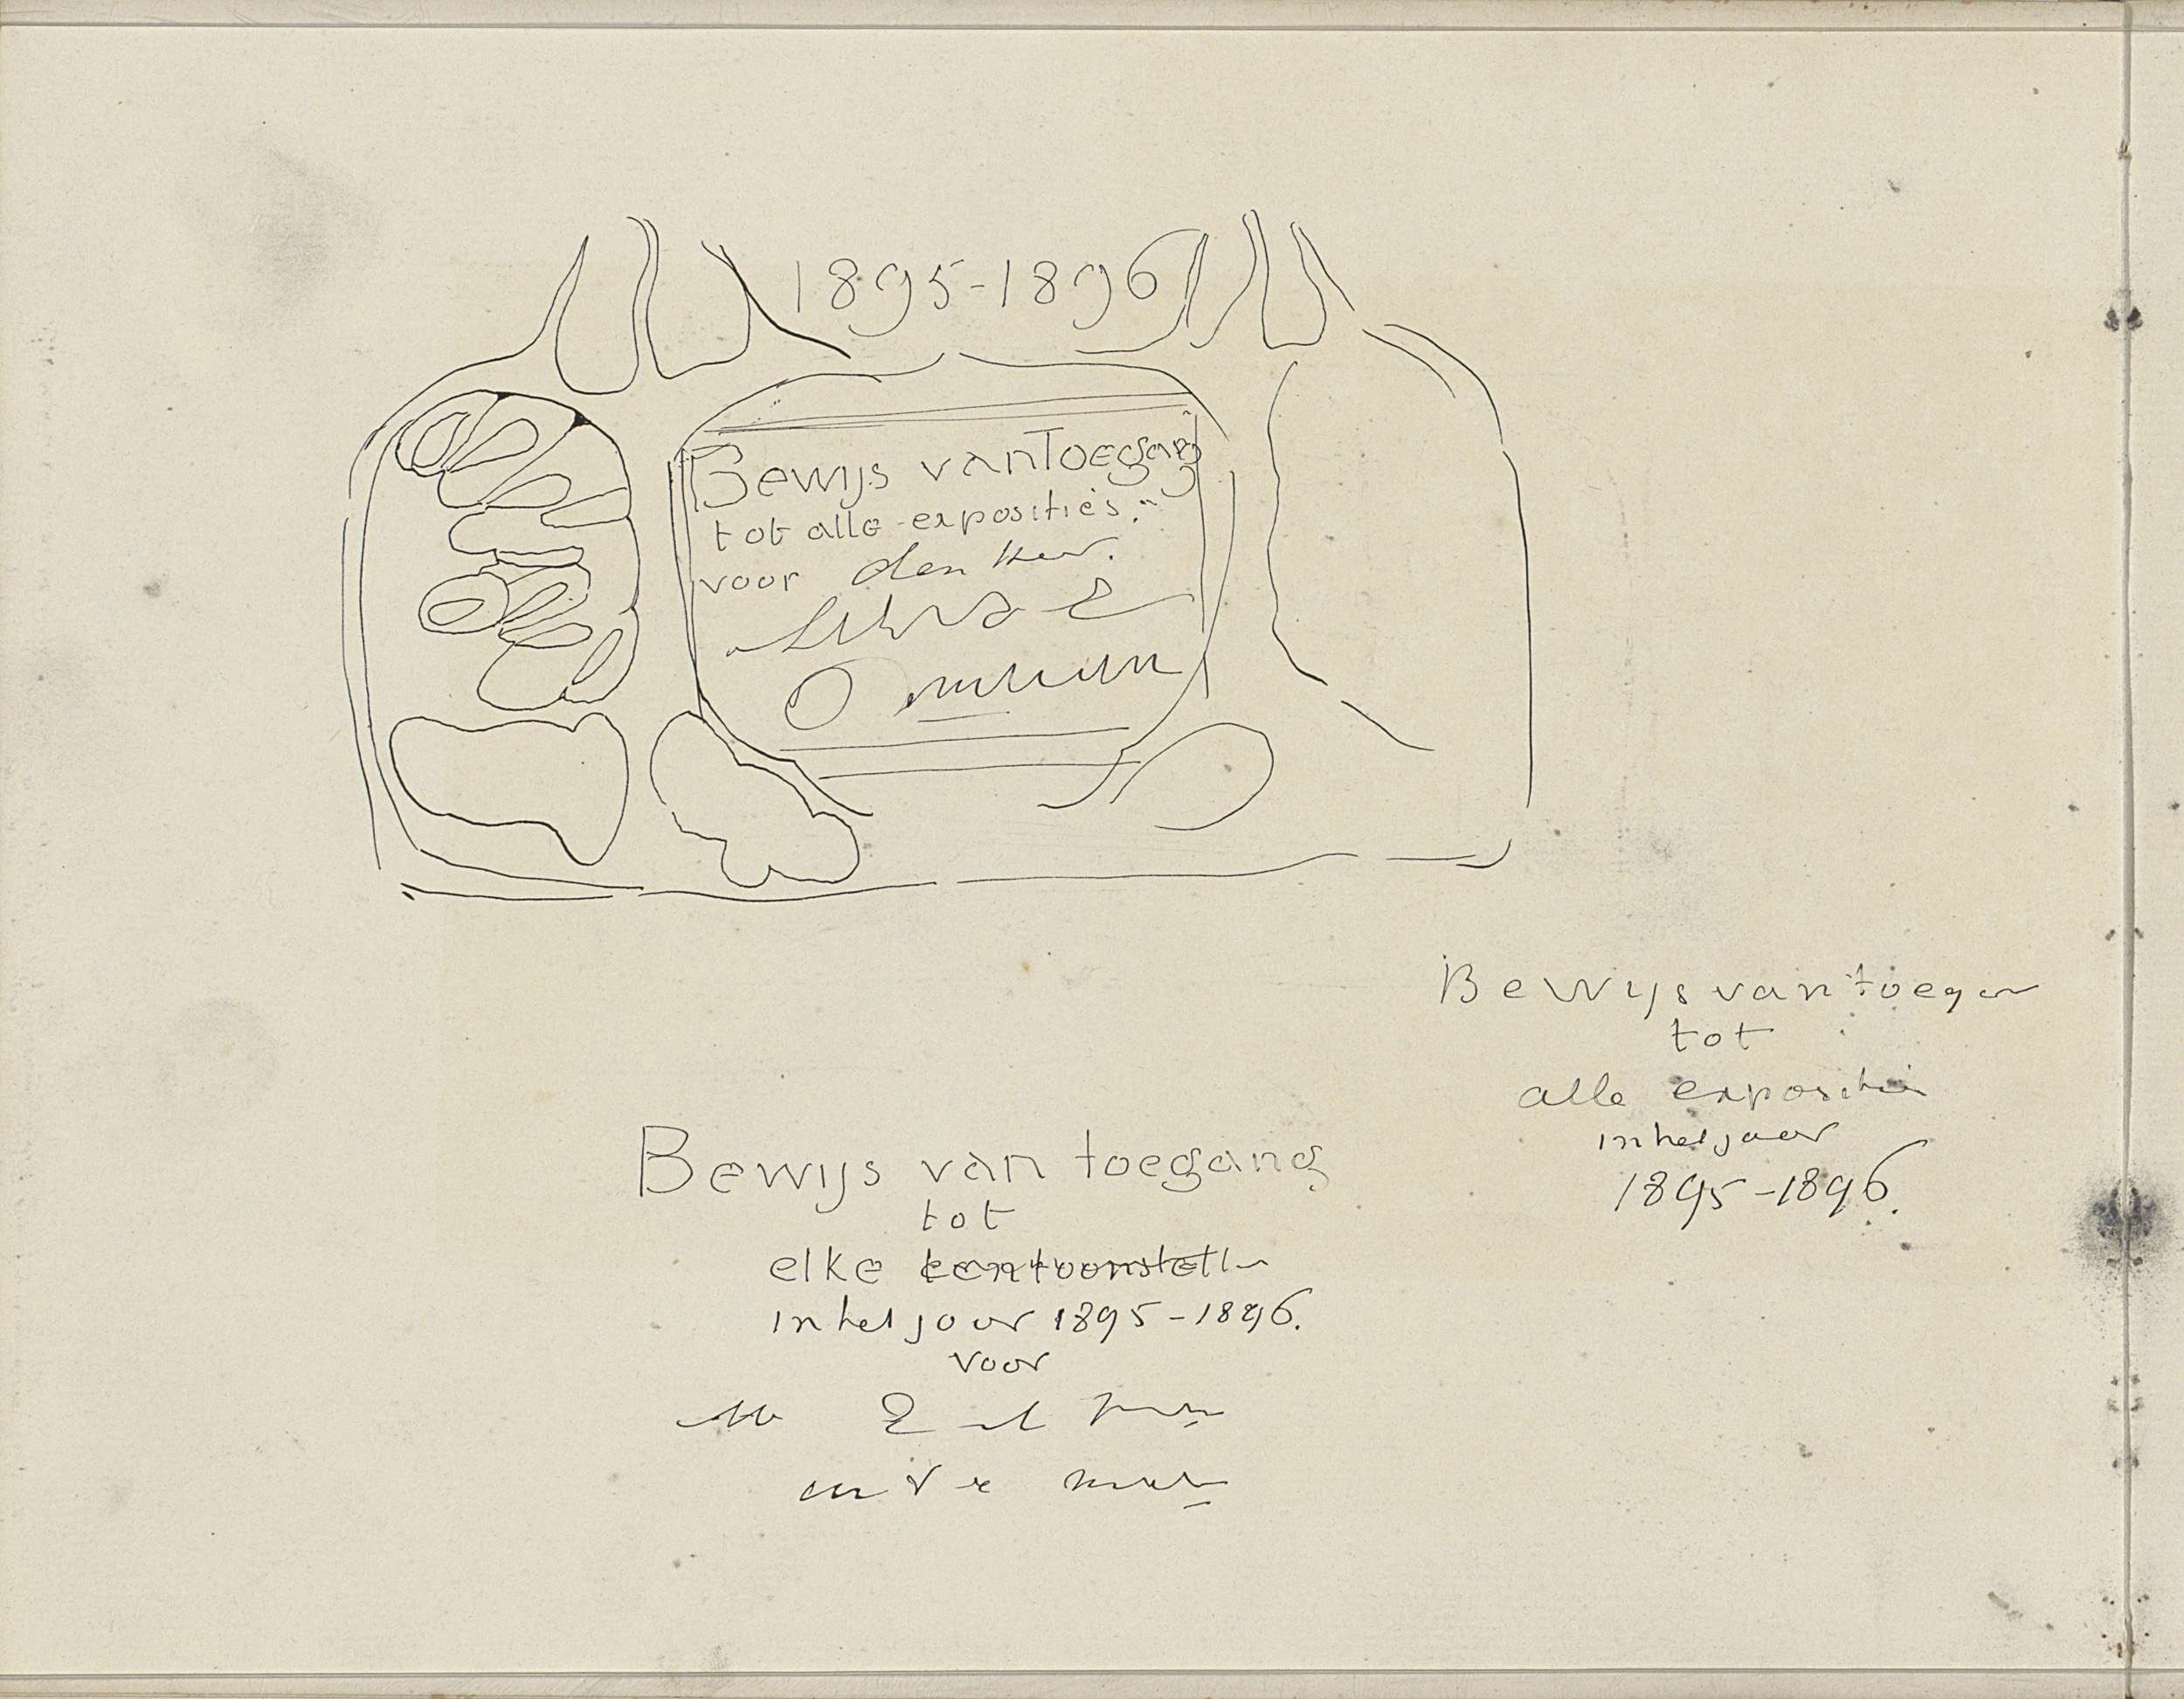 1895-1896
Bewijs van Toegang
tot alle exposities.
voor den Heer.
Bewijs van toegang
tot
alle expositie
in het jaar
1895-1896.
Bewijs van toegang
tot
elke tentoonstell
in het jaar 1895-1896.
voor